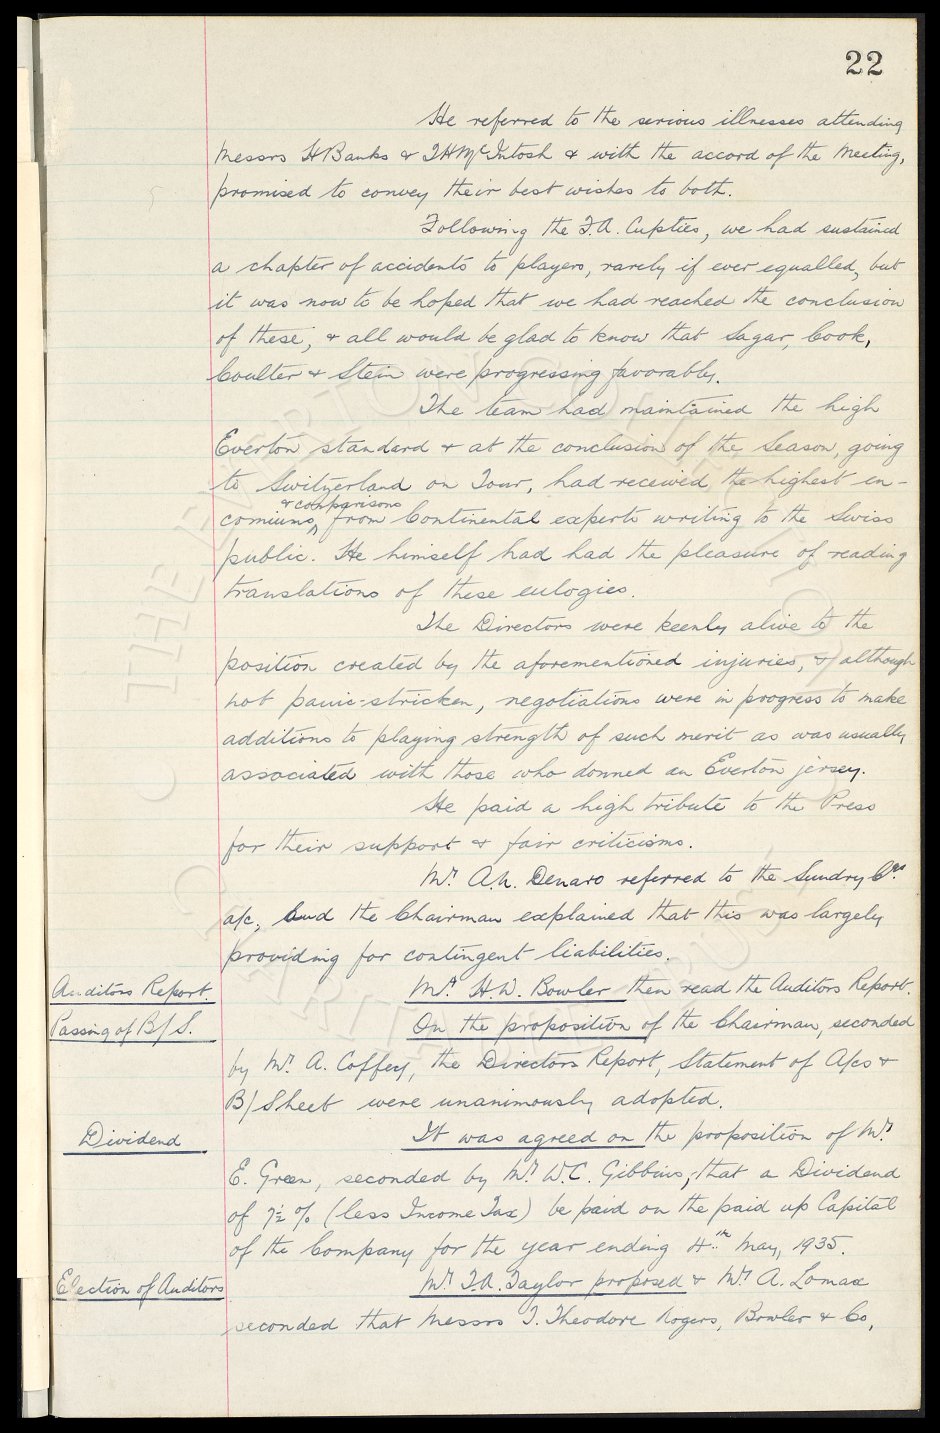 22
He referred to the serious illnesses attending
Messrs H Banks & T H McIntosh & with the accord of the Meeting,
promised to convey their best wishes to both.
Following the F.A. Cupties, we had sustained
a chapter of accidents to players, rarely if ever equalled, but
it was now to be hoped that we had reached the conclusion
of these, & all would be glad to know that Sagar, Cook,
Coulter & Stein were progressing favorably.
The team had maintained the high
Everton standard & at the conclusion of the Season, going
to Switzerland on Tour, had received the highest en-
& comparisons
comiums from Continental experts writing to the Swiss
public. He himself had had the pleasure of reading
translations of these eulogies.
The Directors were keenly alive to the
position created by the aforementioned injuries, & although
not panic-stricken, negotiations were in progress to make
additions to playing strength of such merit as was usually
associated with those who donned an Everton jersey.
He paid a high tribute to the Press
for their support & fair criticisms.
Mr. A.N. Denaro referred to the Sundry Crs
a/c, and the Chairman explained that this was largely
providing for contingent liabilities.
Auditors Report. Mr. H.W. Bowler then read the Auditors Report.
Passing of B/S. On the proposition of the Chairman, seconded
by Mr. A. Coffey, the Directors Report, Statement of A/cs &
B/Sheet were unanimously adopted.
Dividend It was agreed on the proposition of Mr.
E. Green, seconded by Mr. W.C. Gibbins, that a Dividend
of 7½ % (less Income Tax) be paid on the paid up Capital
of the Company for the year ending 4th May, 1935.
Election of Auditors Mr. F.A. Taylor proposed & Mr. A. Lomax
seconded that Messrs T. Theodore Rogers, Bowler & Co,